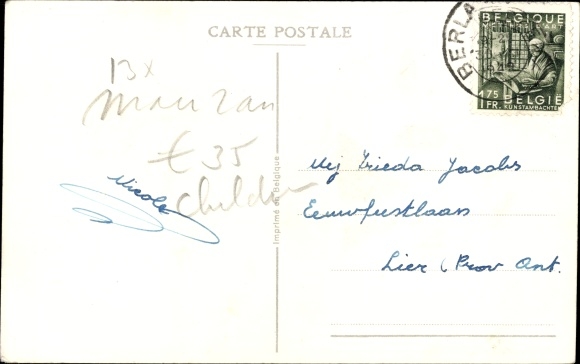 CARTE POSTALE
BERLA
BELGIQUE
MÉTIERS D'ART
1.75 BELGIE
1 FR. KUNSTAMBACHTEN
13x
€ 35
Children
Nicole
Imprimé en Belgique
Mej Frieda Jacobs
Eeuwfeestlaan
Lier (Prov Ant.